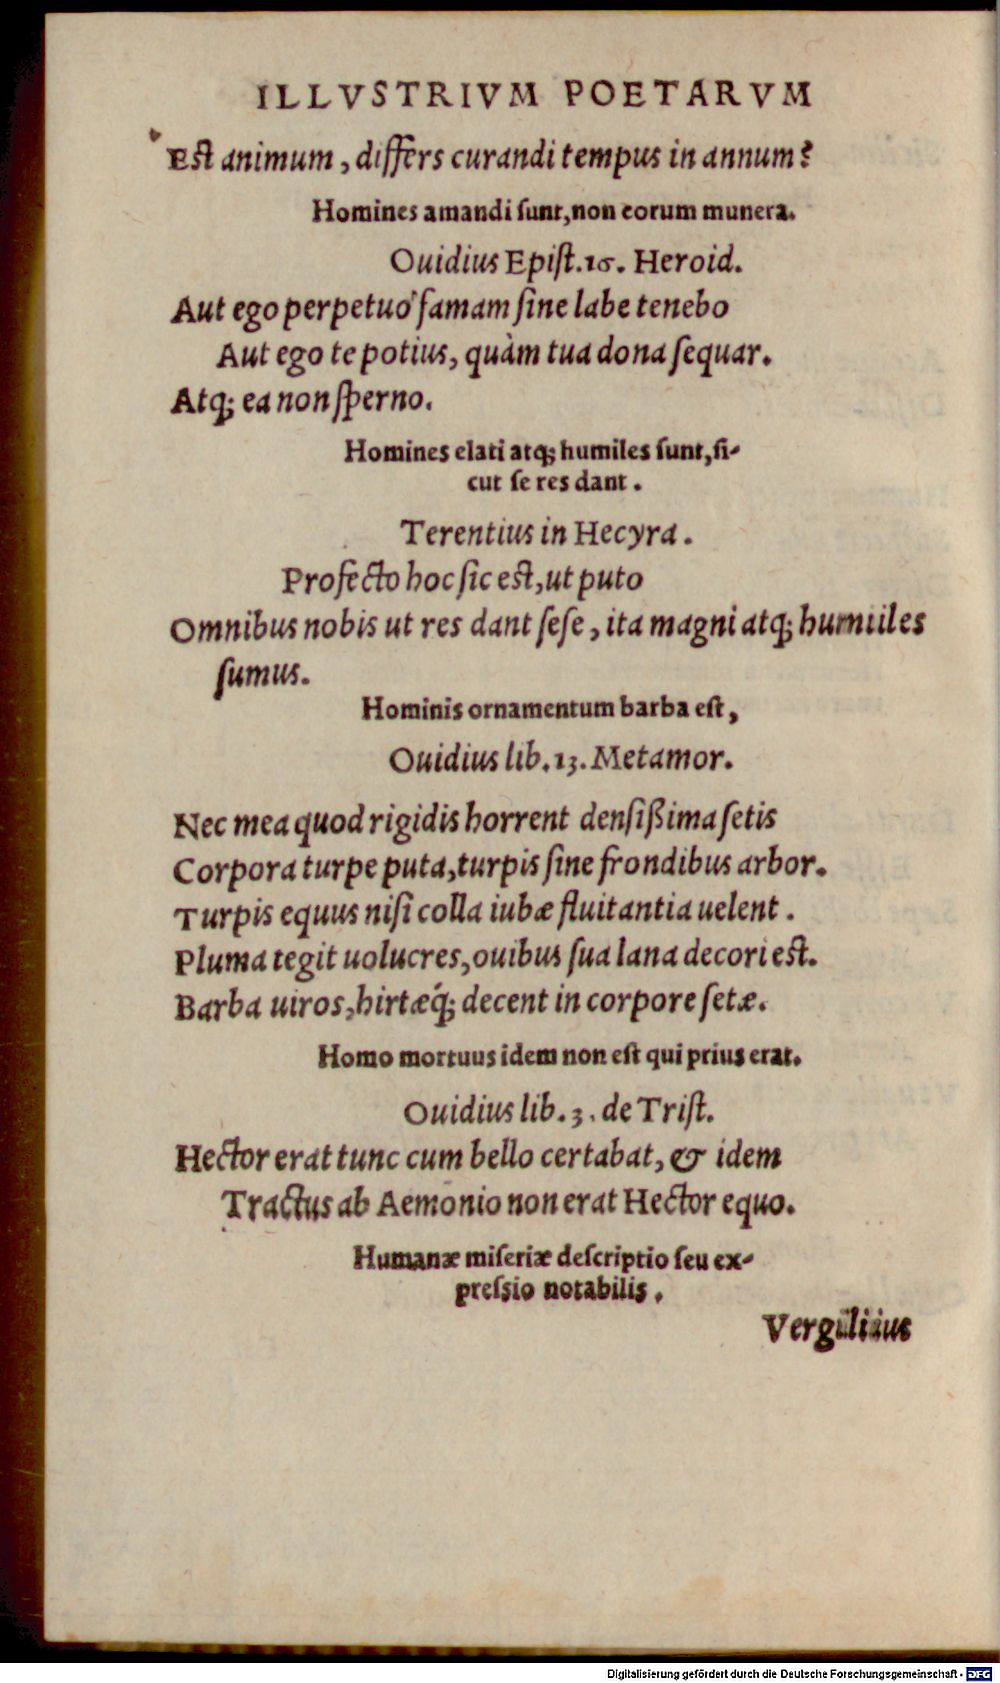 ILLVSTRIVM POETARVM
Est animum, differs curandi tempus in annum?
Homines amandi ſunt, non eorum munera.
Ouidius Epiſt. 16. Heroid.
Aut ego perpetuò famam ſine labe tenebo
Aut ego te potius, quàm tua dona ſequar.
Atq; ea non ſperno.
Homines elati atq; humiles ſunt, ſi-
cut ſe res dant.
Terentius in Hecyra.
Profecto hoc ſic eſt, ut puto
Omnibus nobis ut res dant ſeſe, ita magni atq; humiles
ſumus.
Hominis ornamentum barba eſt,
Ouidius lib. 13. Metamor.
Nec mea quod rigidis horrent denſißima ſetis
Corpora turpe puta, turpis ſine frondibus arbor.
Turpis equus niſi colla iubæ fluitantia uelent.
Pluma tegit uolucres, ouibus ſua lana decori eſt.
Barba uiros, hirtæq́; decent in corpore ſetæ.
Homo mortuus idem non eſt qui prius erat.
Ouidius lib. 3. de Triſt.
Hector erat tunc cum bello certabat, & idem
Tractus ab Aemonio non erat Hector equo.
Humanæ miſeriæ deſcriptio ſeu ex-
preſsio notabilis.
Vergilius
Digitalisierung gefördert durch die Deutsche Forschungsgemeinschaft - DFG